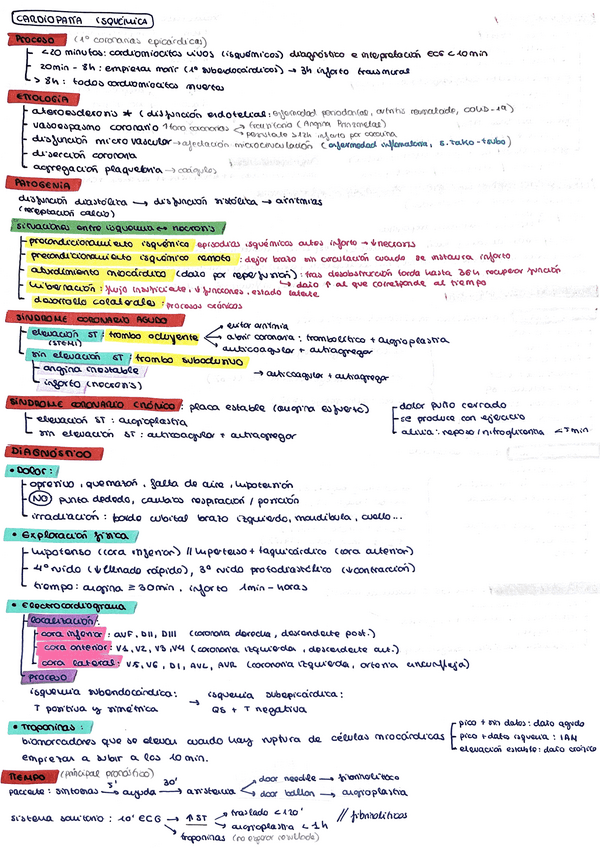 CARDIOPATÍA ISQUÉMICA
PROCESO (1º coronarias epicárdicas)
<20 minutos: cardiomiocitos vivos (isquémicos) diagnóstico e interpretación ECG <10min
20min - 8h: empiezan morir (1º subendocárdicos) → 3h infarto transmural
> 8h: todos cardiomiocitos muertos
ETIOLOGÍA
ateroesclerosis * (disfunción endotelial: enfermedad periodontal, artritis reumatoide, COVID-19)
vasoespasmo coronario transitorio (Angina Prinzmetal)
persistente >12h infarto por cocaína
disfunción microvascular → afectación microcirculación (enfermedad inflamatoria, S. Tako-tsubo)
disección coronaria
agregación plaquetaria → coágulos
PATOGENIA
disfunción diastólica → disfunción sistólica → arritmias
(recaptación calcio)
situaciones entre isquemia ↔ necrosis
precondicionamiento isquémico episodios isquémicos antes infarto → ↓necrosis
precondicionamiento isquémico remoto: dejar brazo sin circulación cuando se instaura infarto
aturdimiento miocárdico (daño por reperfusión): tras desobstrucción tarda hasta 36h recuperar función
→ daño ↑ al que corresponde al tiempo
hibernación: flujo insuficiente, ↓ funciones, estado latente
desarrollo colaterales: procesos crónicos
SÍNDROME CORONARIO AGUDO
elevación ST: trombo ocluyente
(STEMI)
evitar arritmia
abrir coronaria: trombolítico + angioplastia
anticoagular + antiagregar
sin elevación ST: trombo suboclusivo
angina inestable
infarto (necrosis)
→ anticoagular + antiagregar
SÍNDROME CORONARIO CRÓNICO: placa estable (angina esfuerzo)
elevación ST: angioplastia
sin elevación ST: anticoagular + antiagregar
dolor puño cerrado
se produce con ejercicio
alivia: reposo/nitroglicerina <5min
DIAGNÓSTICO
• DOLOR:
opresivo, quemazón, falta de aire, hipotensión
NO punta dededo, cambios respiración / posición
irradiación: borde cubital brazo izquierdo, mandíbula, cuello...
• Exploración física
hipotenso (cara inferior) // hipertenso + taquicárdico (cara anterior)
4º ruido (↓llenado rápido), 3º ruido protodiastólico (↓contracción)
tiempo: angina ≥ 30min, infarto 1min - horas
• Electrocardiograma
localización:
cara inferior: AVF, DII, DIII (coronaria derecha, descendente post.)
cara anterior: V1, V2, V3, V4 (coronaria izquierda, descendente ant.)
cara lateral: V5, V6, DI, AVL, AVR (coronaria izquierda, arteria circunfleja)
PROCESO
isquemia subendocárdica:
T positiva y simétrica
→ isquemia subepicárdica:
QS + T negativa
• Troponinas:
biomarcadores que se elevan cuando hay ruptura de células miocárdicas
empiezan a subir a los 10 min.
pico + sin datos: daño agudo
pico + dato isquemia: IAM
elevación estable: daño crónico
TIEMPO (principal pronóstico)
paciente: síntomas 5' → ayuda 30' → asistencia
door needle → fibrinolítico
door ballon → angioplastia
sistema sanitario: 10' ECG → ↑ST
traslado <120' // fibrinolíticos
angioplastia <1h
troponinas (no esperar resultado)